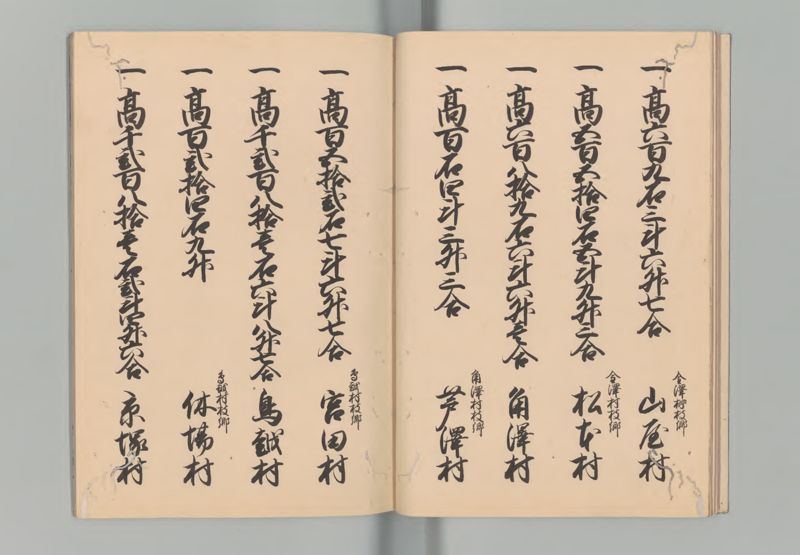 一 高六百九石三斗六升七合
金澤村枝郷
山屋村
一 高五百五拾四石五斗九升二合
金澤村枝郷
松本村
一 高六百八拾九石六斗六升壱合
角澤村
一 高百石四斗三升三合
角澤村枝郷
芦澤村
一 高百五拾弐石七斗六升七合
鳥越村枝郷
宮田村
一 高千弐百八拾壱石六斗八升七合
鳥越村
一 高百弐拾四石九升
鳥越村枝郷
休場村
一 高千弐百八拾壱石弐斗四升六合
京塚村